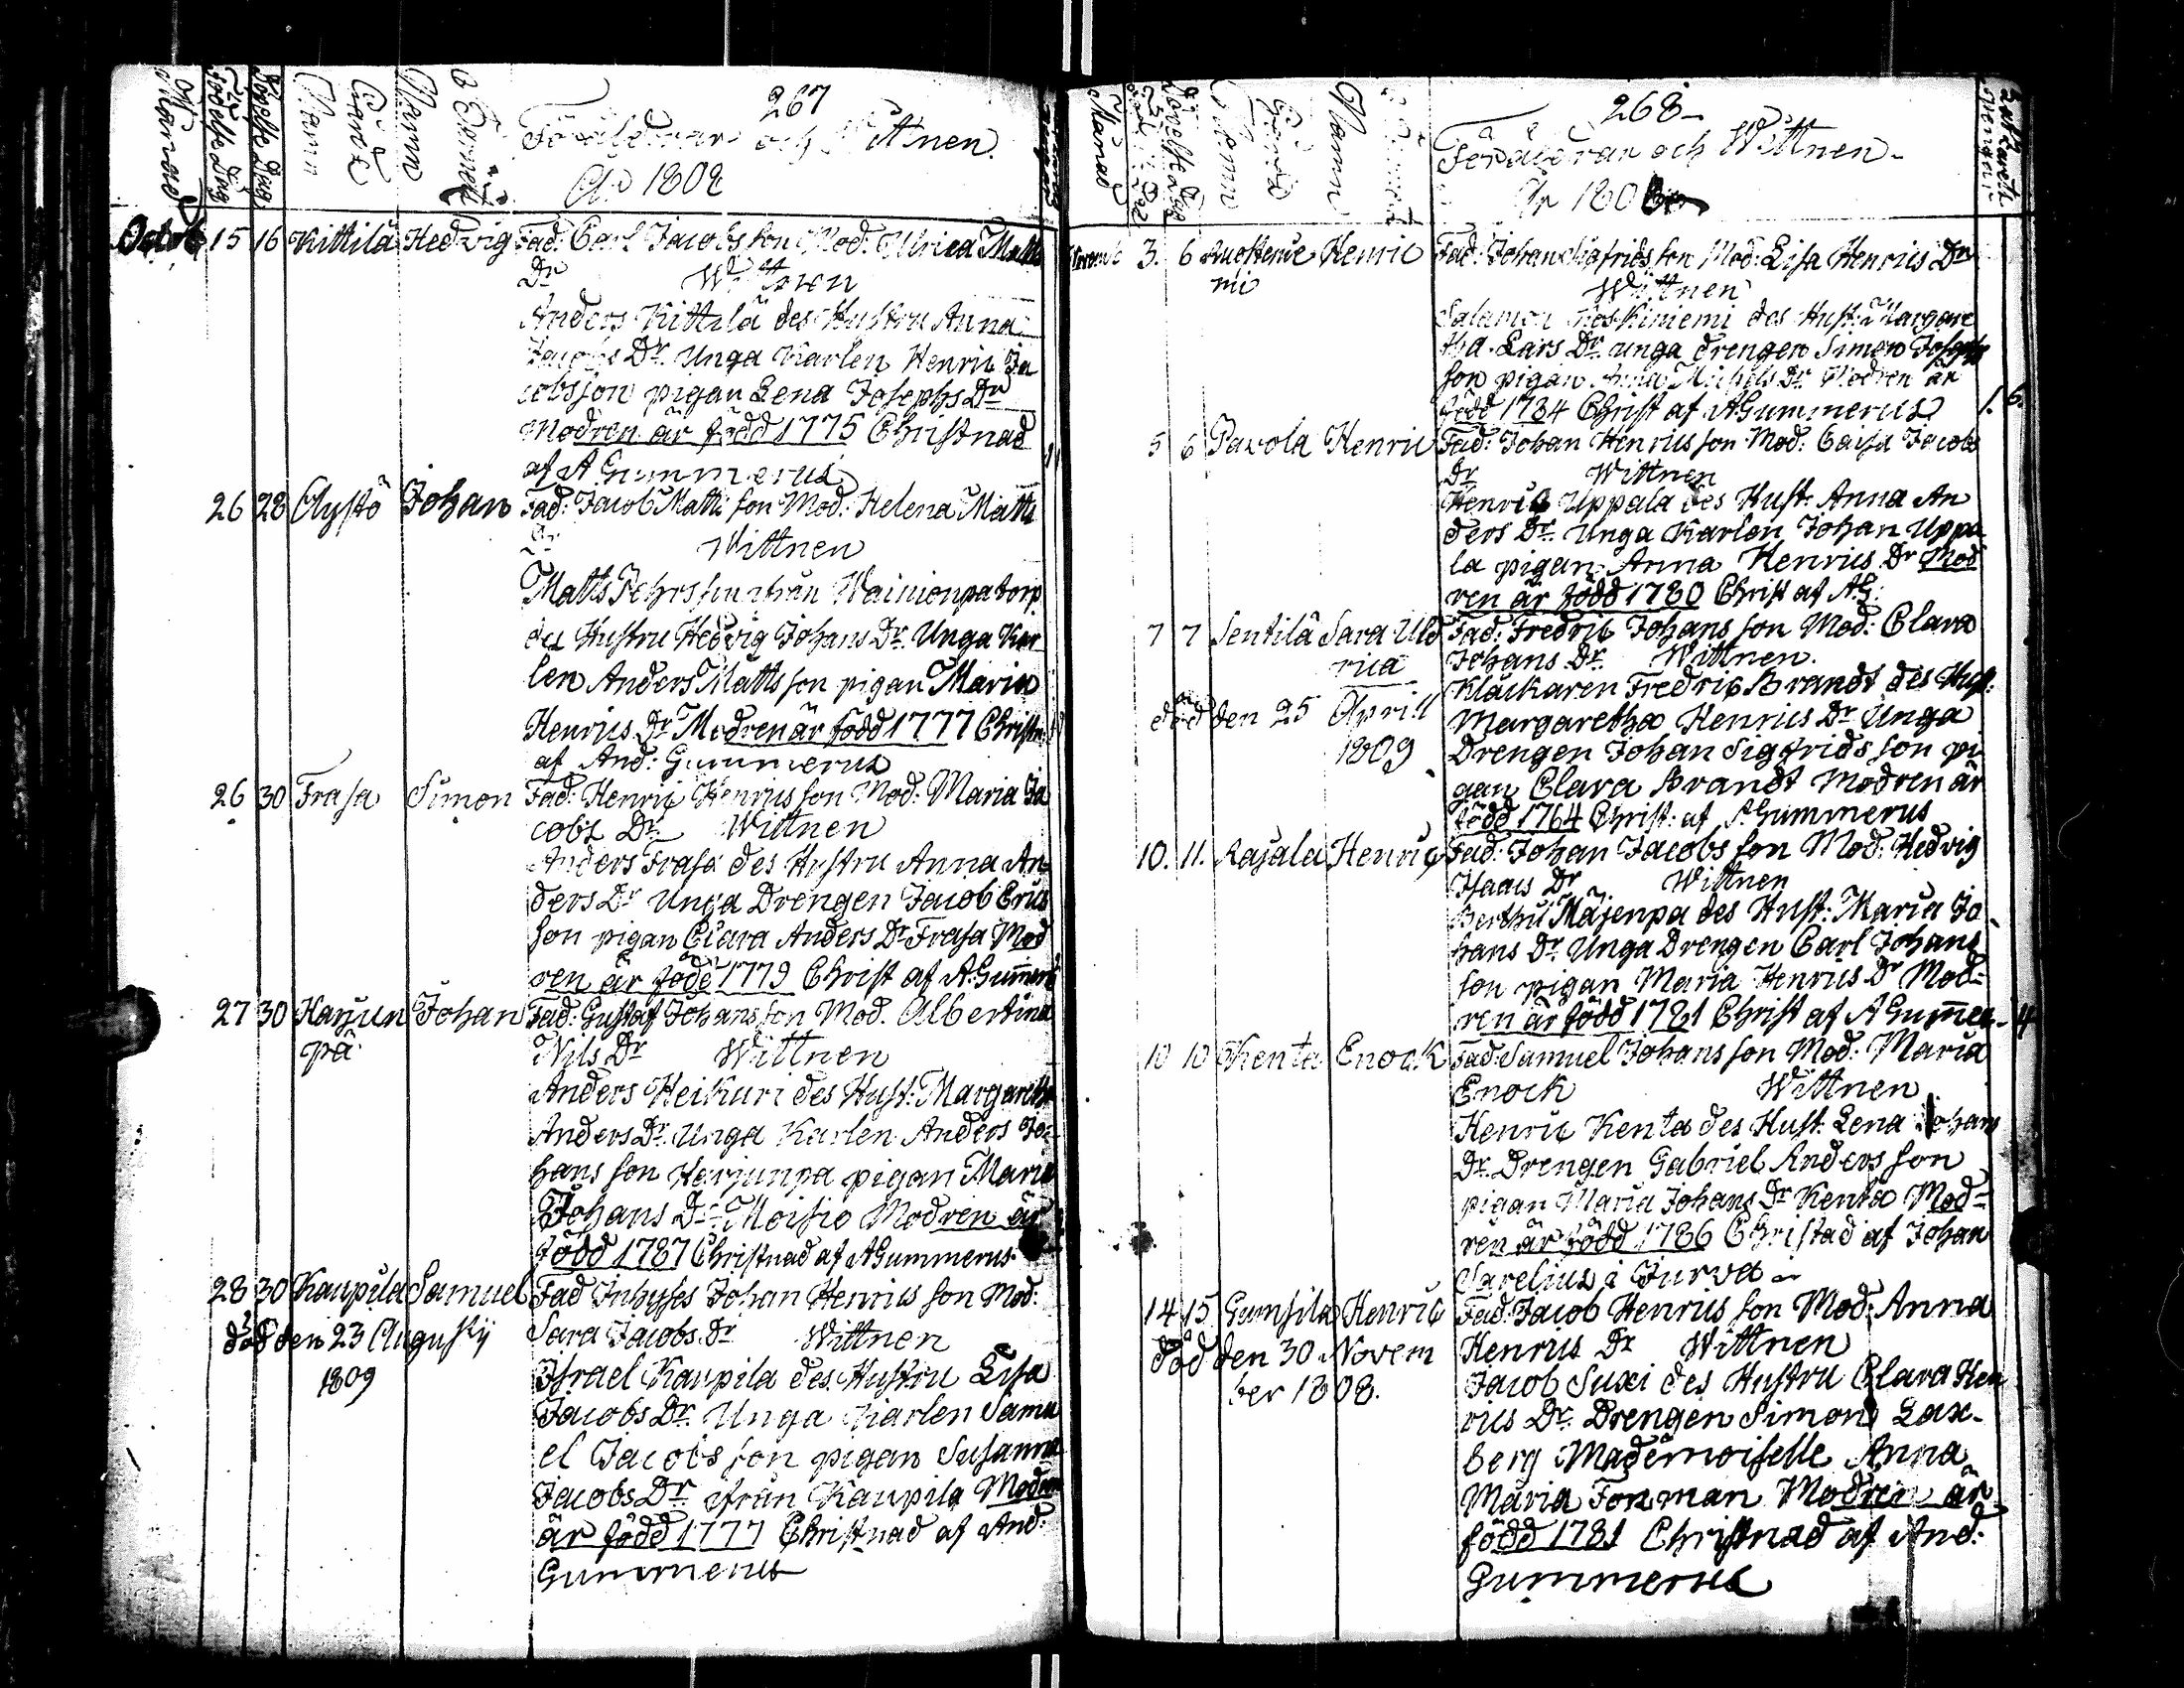 267
Månad
Födelse Dag
Döpelse Dag
Gård Namn
Barnets Namn
Föräldrar och Wittnen.
Åhr 1808
Octob 15 16 Kittilä Hedvig Fad: Carl Jacobs son Mod: Ulrica Matts
Dr Wittnen
Anders Kittilä des Hustru Anna
Jacobs Dr Unga Karlen Henric Ja
cobsson pigan Lena Josephs Dr
Modren är född 1775 Christnad
af A Gummerus
26 28 Clystö Johan Fad: Jacob Matts son Mod: Helena Matts
Dr Wittnen
Matts Pehrs son ifrån Wainionpa torp
des Hustru Hedvig Johans Dr Unga Kar
len Anders Matts son pigan Maria
Henrics Dr Modren är född 1777 Christn:
af And: Gummerus
26 30 Frasa Simon Fad: Henric Henrics son Mod: Maria Ja
cobs Dr Wittnen
Anders Frasa des Hustru Anna An
ders Dr Unga Drengen Jacob Erics
son pigan Clara Anders Dr Frasa Mod
ren är född 1779 Christ af A. Gum̄er
27 30 Harjun Johan Fad: Gustaf Johans son Mod. Albertina
pä Nils Dr Wittnen
Anders Heikuri des Hust: Margaretha
Anders Dr Unga Karlen Anders Jo
hans son Harjunpa pigan Maria
Johans Dr Moisio Modren är
född 1787 Christnad af A Gummerus
28 30 Kaupila Samuel Fad Inhyses Johan Henrics son Mod:
död den 23 Augustij Sara Jacobs Dr Wittnen
1809 Israel Kaupila des Hustru Lisa
Jacobs Dr Unga Karlen Samu
el Jacobs son pigan Susanna
Jacobs Dr ifrån Kaupila Modren
är född 1777 Christnad af And:
Gummerus
268
Månad
Gård Namn
Föräldrar och Wittnen
Åhr 180
3. 6 Henric Fad: Johan Sigfrids son Mod: Lisa Henrics Dr
mi Wittnen
Salamon Koskiniemi des Hust: Margare
tha Lars Dr unga drengen Simon Josephs
son pigan Anna Michels Dr Modren är
född 1784 Christ af A Gummerus 1. 6.
5 6 Pavola Henric Fad: Johan Henrics son Mod: Caisa Jacobs
Dr Wittnen
Henric Uppala des Hust: Anna An
ders Dr Unga Karlen Johan Uppa
la pigan Anna Henrics Dr Mod
ren är född 1780 Christ af AG:
7 7 Sentilä Sara Ul Fad: Fredric Johans son Mod: Clara
rica Johans Dr Wittnen.
Klåckaren Fredric Brandt des Hust:
död den 25 April Margaretha Henrics Dr Unga
1809 Drengen Johan Sigfrids son pi
gan Clara Brandt Modren är
född 1764 Christ: af A Gummerus
10. 11. Rajala Henric Fad: Johan Jacobs son Mod: Hedvig
Isaacs Dr Wittnen
Berthil Mäjenpa des Hust: Maria Jo
hans Dr Unga Drengen Carl Johans
son pigan Maria Henrics Dr Mod=
ren är född 1781 Christ af A Gum̄er 4
10 10 Kenta Enock Fad: Samuel Johans son Mod: Maria
Enock Wittnen
Henric Kenta des Hust: Lena Johans
Dr Drengen Gabriel Anders son
pigan Maria Johans Dr Kenta Mod=
ren är född 1786 Christad af Johan
Sarelius i Jurva
14 15 Gunsila Henric Fad: Jacob Henrics son Mod: Anna
död den 30 Novem Henrics Dr Wittnen
ber 1808. Jacob Suxi des Hustru Clara Hen
rics Dr Drengen Simon Lax-
berg Mademoiselle Anna
Maria Forsman Modren är
född 1781 Christnad af And:
Gummerus